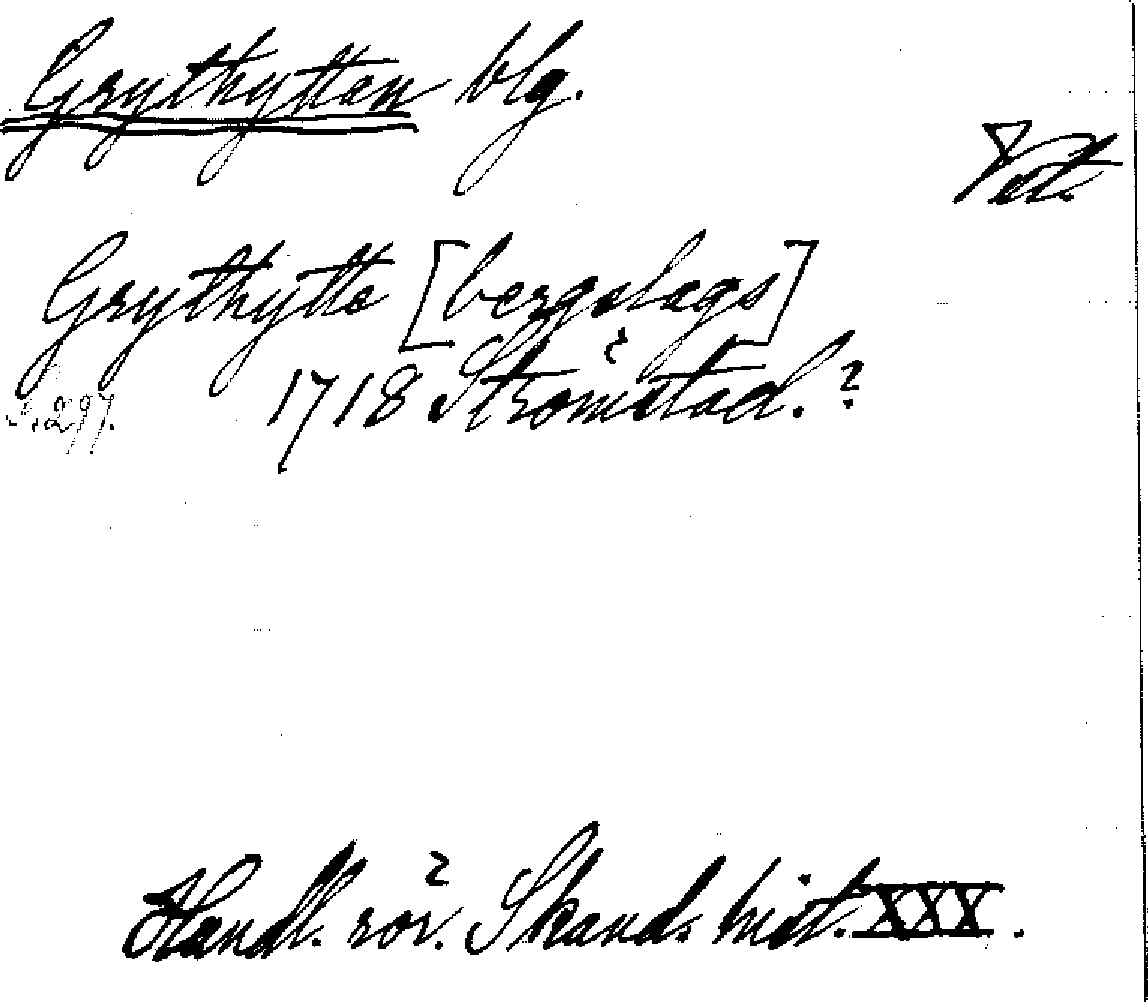 Grythyttan blg.
Vstm.
Grythytte [bergslags]
s. 297. 1718 Strömstad.?
Handl. rör. Skand. hist. XXX.